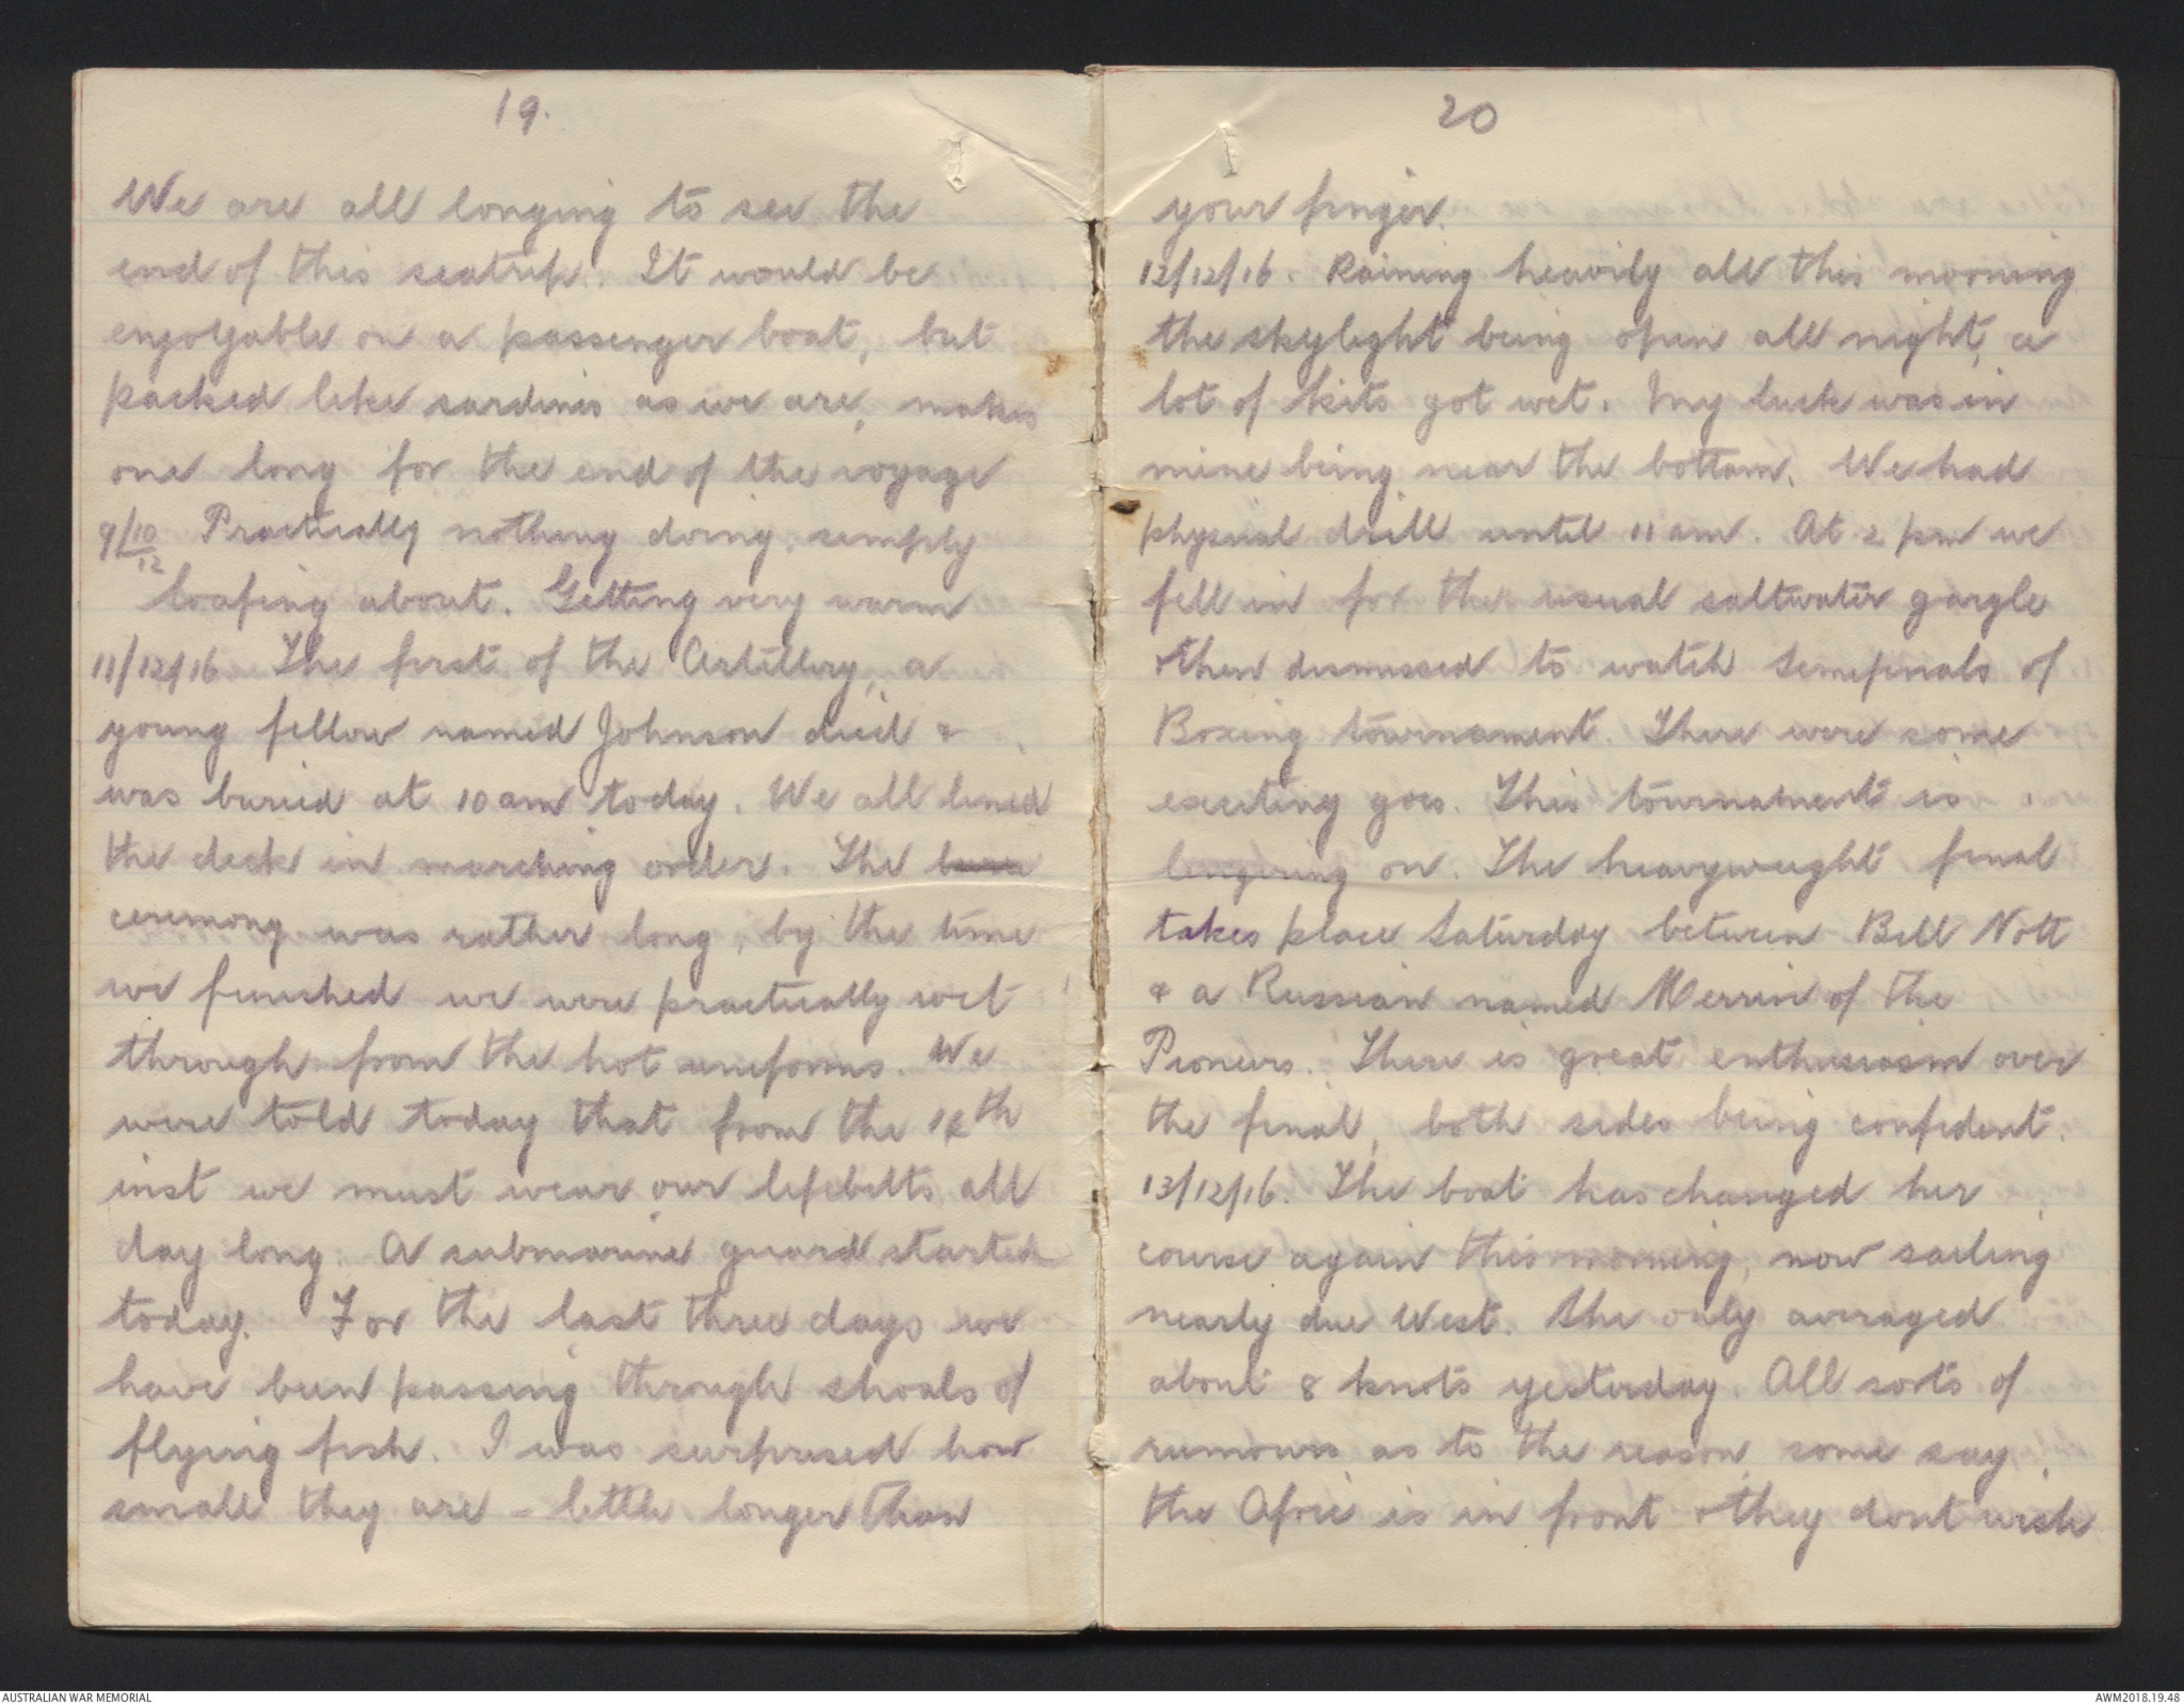 19.
We are all longing to see the
end of this seatrip. It would be
enjoyable on a passenger boat, but
packed like sardines as we are, makes
one long for the end of the voyage
9/10/12 Practically nothing doing, simply
loafing about. Getting very warm
11/12/16 The first of the Artillery, a
young fellow named Johnson died &
was buried at 10 am today. We all lined
the deck in marching order. The
ceremony was rather long, by the time
we finished we were practically wet
through from the hot uniforms. We
were told today that from the th
inst we must wear our lifebelts all
day long. A submarine guard started
today. For the last three days we
have been passing through shoals of
flying fish. I was surprised how
small they are - little longer than
20
your finger.
12/12/16. Raining heavily all this morning
the skylight being open all night, a
lot of kits got wet. My luck was in
mine being near the bottom. We had
physical drill until 11 am. At 2 pm we
fell in for the usual saltwater gargle
then dismissed to watch semifinals of
Boxing tournament. There were some
exciting goes. This tournament is
lingering on. The heavyweight final
takes place Saturday between Bill Nott
& a Russian named Merrin of the
Pioneers. There is great enthusiasm over
the final, both sides being confident.
13/12/16. The boat has changed her
course again this morning, now sailing
nearly due West. She only averaged
about 8 knots yesterday. All sorts of
rumours as to the reason, some say
the Afric is in front & they dont wish
AUSTRALIAN WAR MEMORIAL
AWM2018.19.48